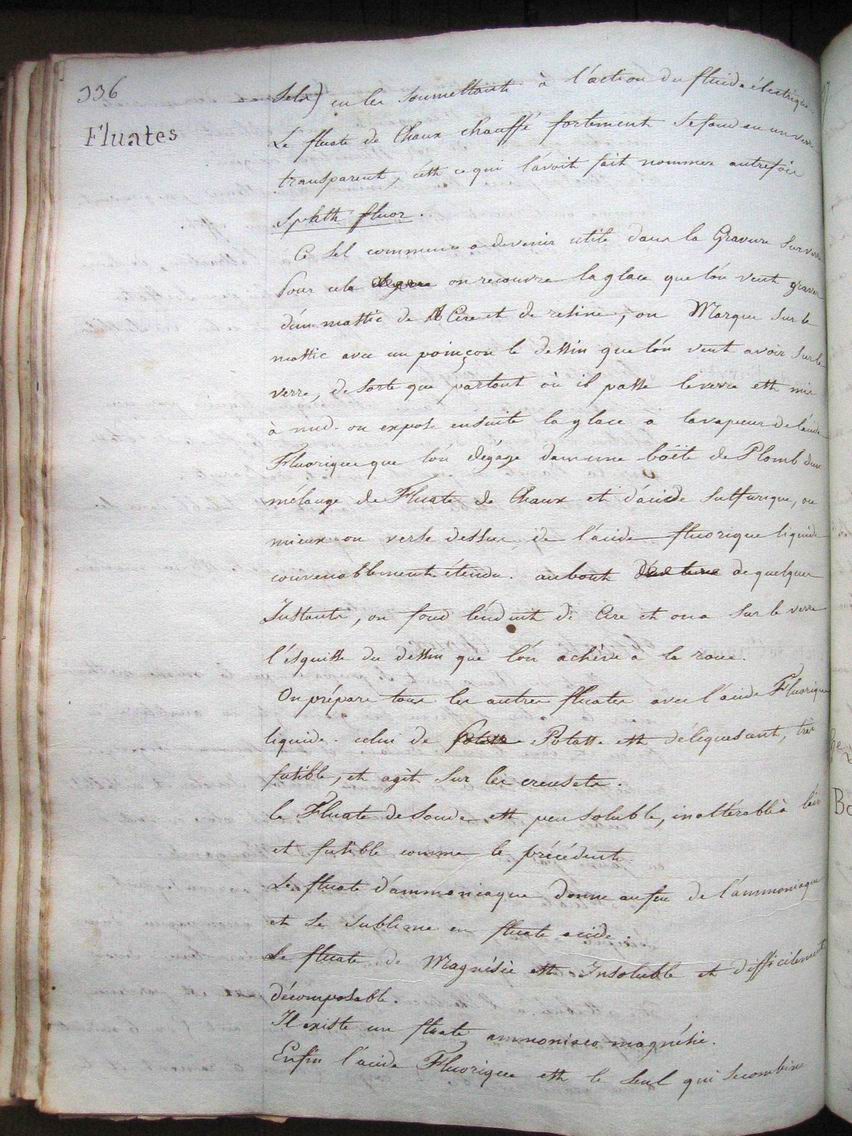 336
Fluates
sels) en les soumettant à l'action du fluide électrique
Le fluate de Chaux chauffé fortement se fond en un verre
transparent, c'est ce qui l'avoit fait nommer autrefois
Spath fluor.
Ce sel commence a devenir utile dans la Gravure sur verre
Pour cela on recouvre la glace que l'on veut graver
d'un mastic de Cire et de resine, on Marque sur le
mastic avec un poinçon le dessin que l'on veut avoir sur le
verre, de sorte que partout où il passe le verre est mis
à nud. on expose ensuite la glace a la vapeur de l'acide
Fluorique que l'on dégage dans une boëte de Plomb d'un
mélange de Fluate de Chaux et d'acide sulfurique, ou
mieux on verse dessus de l'acide fluorique liquide
convenablement étendu. au bout de quelques
Instants, on fond l'enduit de Cire et on a sur le verre
l'esquisse du dessin que l'on achève a la roue.
On prépare tous les autres fluates avec l'acide Fluorique
liquide. celui de Potasse est déliquescent, très
fusible, et agit sur les creusets.
le Fluate de Soude est peu soluble, inaltérable à l'air
et fusible comme le précédent.
Le fluate d'ammoniaque donne au feu de l'ammoniaque
et se sublime en fluate acide.
Le fluate de Magnésie est Insoluble et difficilement
décomposable
Il existe un fluate ammoniaco magnésie.
Enfin l'acide Fluorique est le seul qui se combine